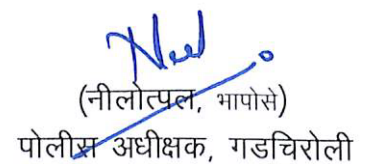 (नीलोत्पल, भापोसे)
पोलीस अधीक्षक, गडचिरोली